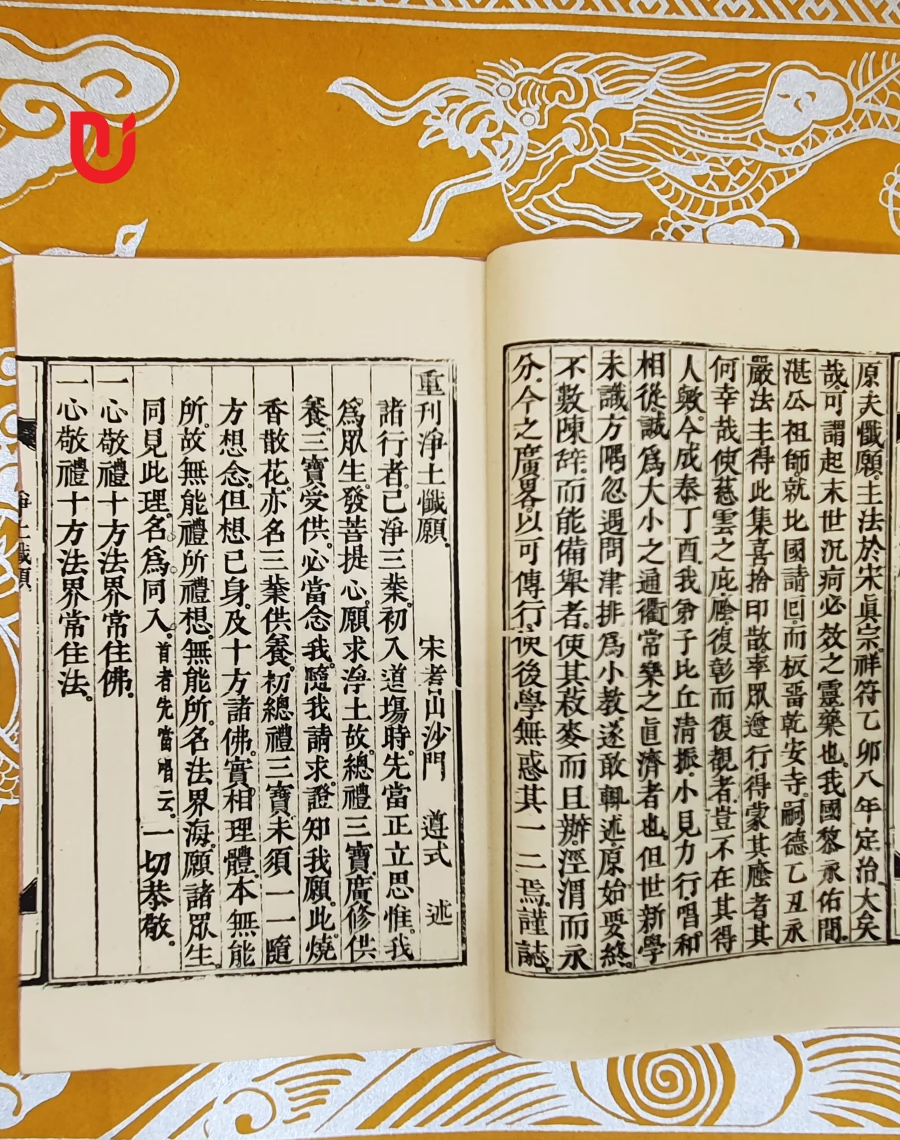 原夫懺願主法於宋眞宗祥符乙卯八年定治大矣
哉可謂起末世沉痾必效之靈藥也我國黎永佑間
湛公祖師就北國請囘而板畱乾安寺嗣德乙丑永
嚴法主得此集喜捨印散率眾遵行得蒙其廕者其
何幸哉使慈雲之庇廕復彰而復觀者豈不在其得
人歟今成泰丁酉我弟子比丘淸振小見力行唱和
相從誠爲大小之通衢常樂之眞濟者也但世新學
未識方隅忽遇問津排爲小教遂敢輒述原始要終
不敷陳辞而能備舉者使其菽麥而且辦涇渭而永
分今之廣畧以可傳行使後學無惑其一二焉謹誌
重刊淨土懺願 宋考山沙門 遵式 述
諸行者己淨三業初入道場時先當正立思惟我
爲眾生發菩提心願求淨土故總禮三寶廣修供
養三寶受供必當念我隨我請求證知我願此燒
香散花亦名三業供養初總禮三寶未須一一隨
方想念但想己身及十方諸佛實相理體本無能
所故無能禮所禮想無能所名法界海願諸眾生
同見此理名爲同入首者先當唱云一切恭敬
一心敬禮十方法界常住佛
一心敬禮十方法界常住法